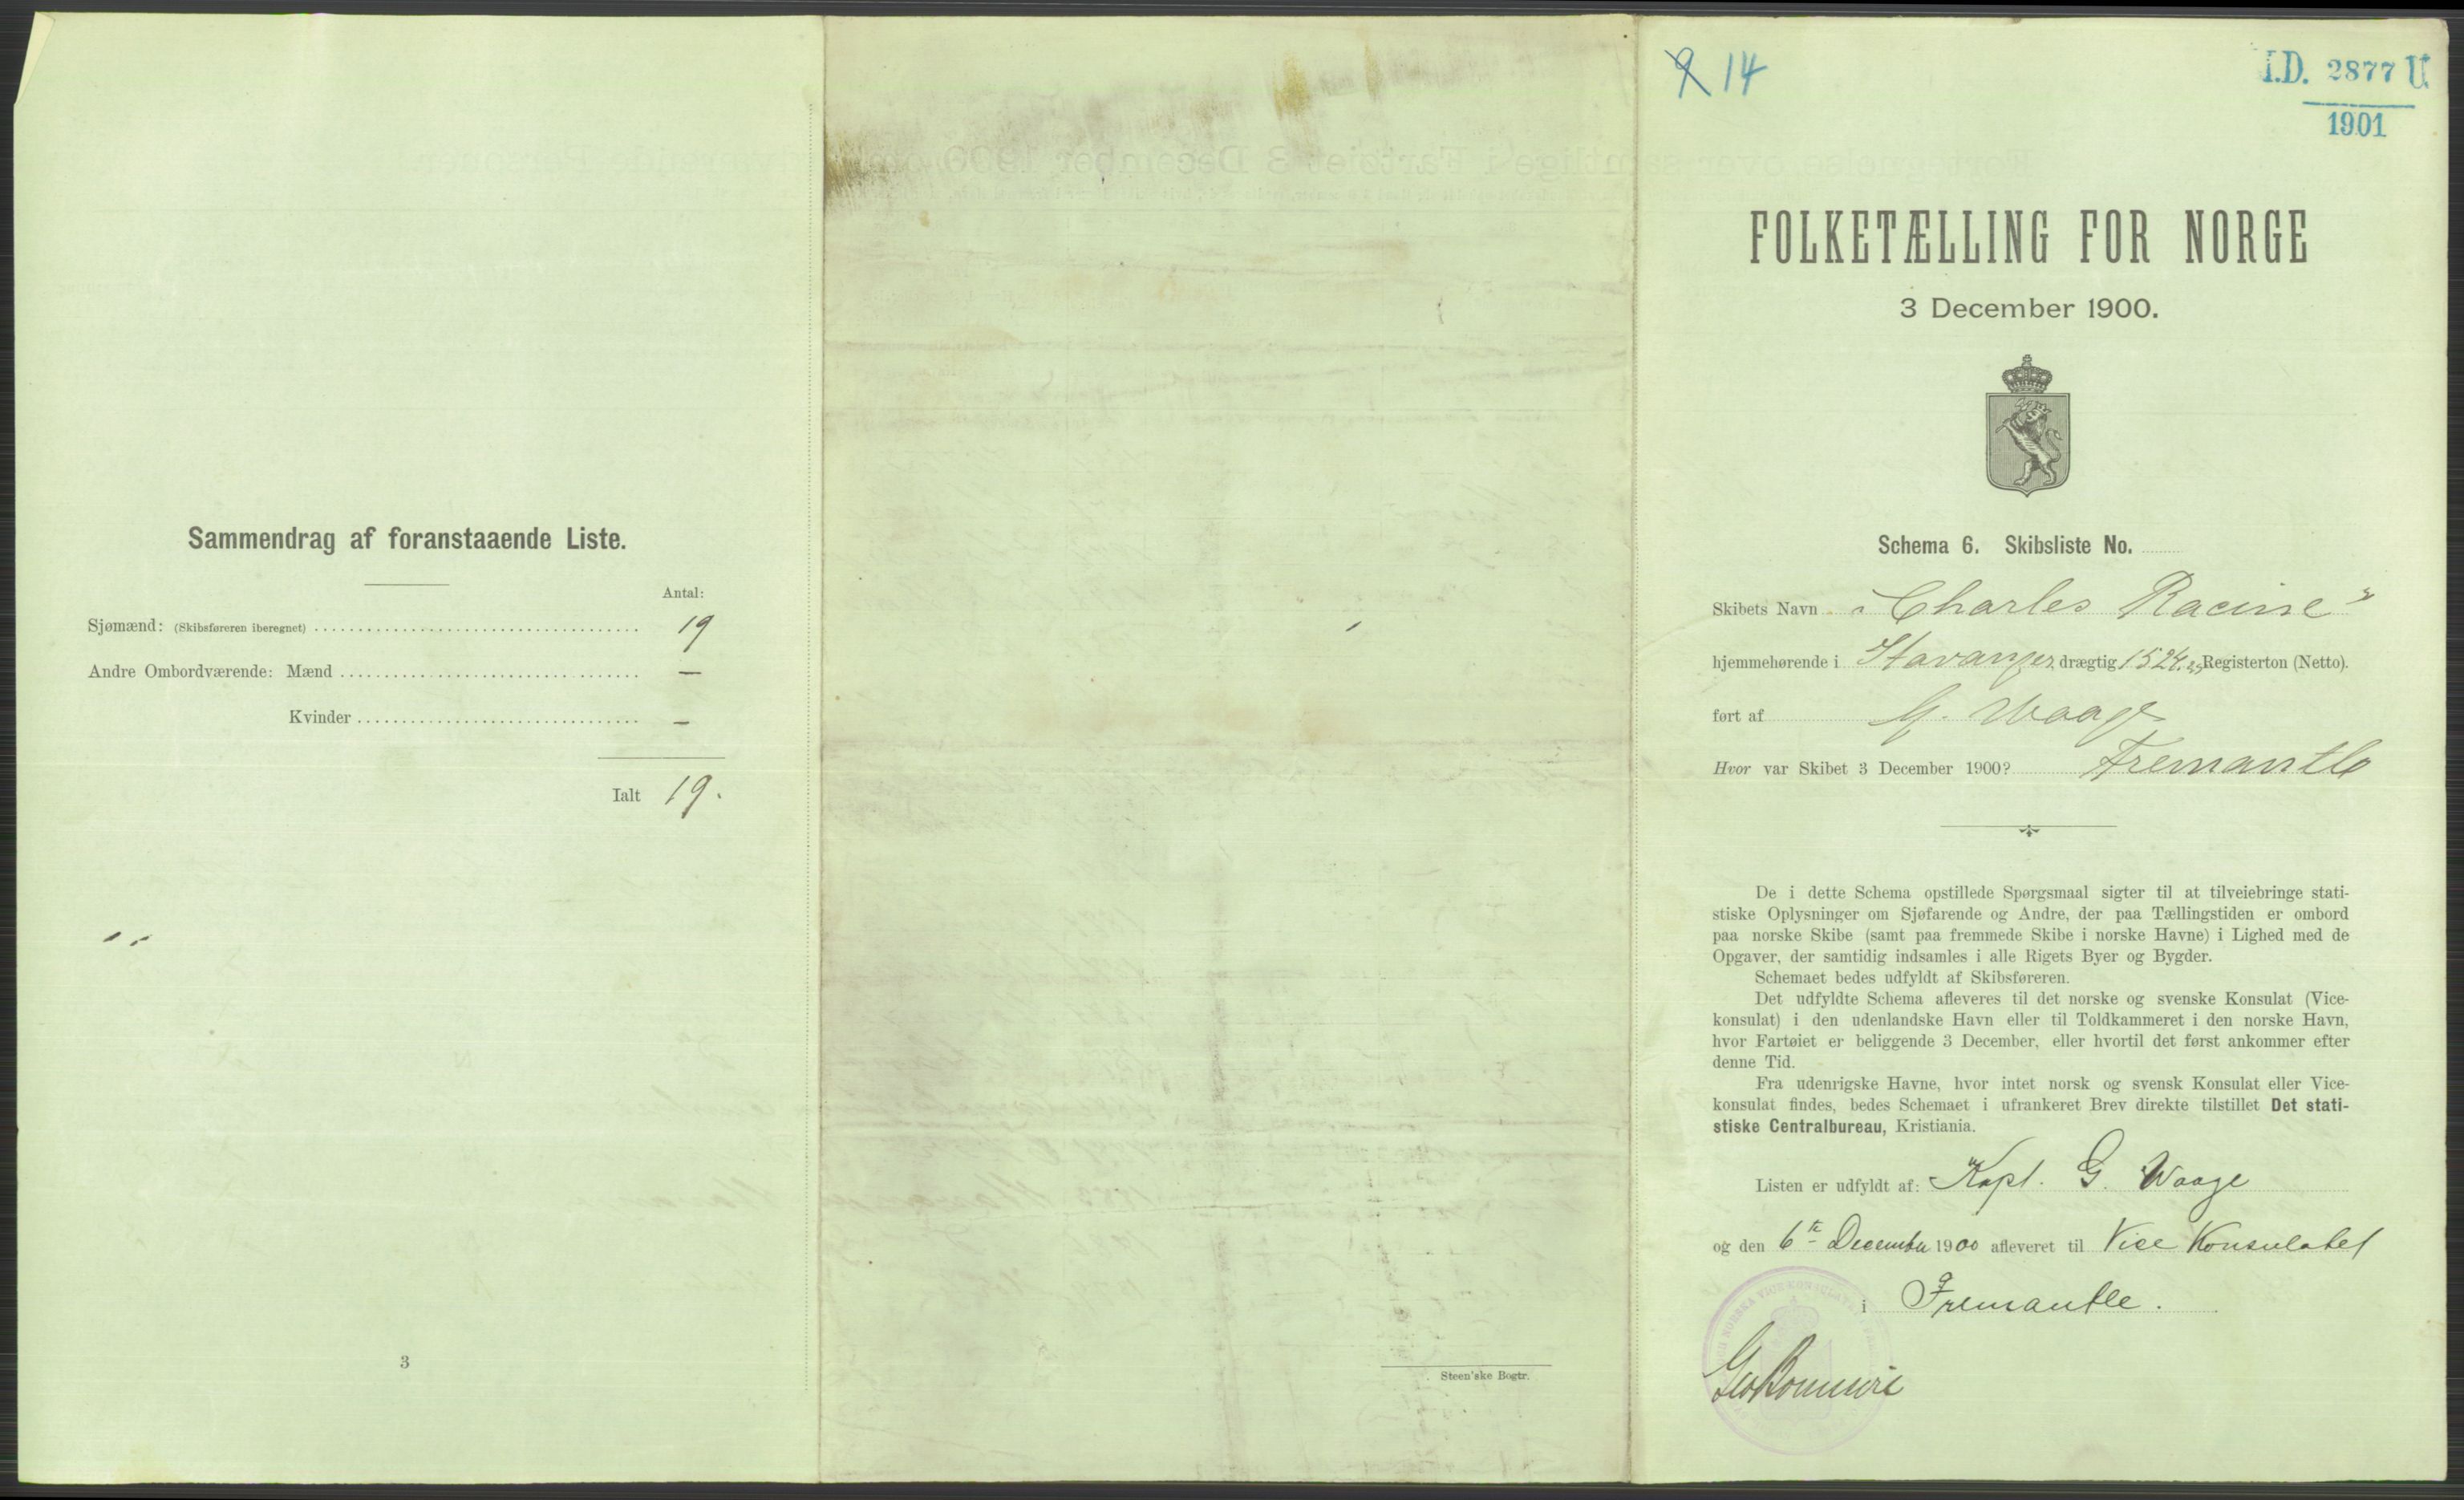 Sammendrag af foranstaaende Liste.
Antal:
Sjømænd: (Skibsføreren iberegnet) 19
Andre Ombordværende: Mænd —
Kvinder —
Ialt 19.
3
Steen'ske Bogtr.
9 14
I.D. 2877 U
1901
FOLKETÆLLING FOR NORGE
3 December 1900.
Schema 6. Skibsliste No.
Skibets Navn "Charles Racine"
hjemmehørende i Stavanger drægtig 1524.25 Registerton (Netto).
ført af G. Waage
Hvor var Skibet 3 December 1900? Fremantle
De i dette Schema opstillede Spørgsmaal sigter til at tilveiebringe stati-
stiske Oplysninger om Sjøfarende og Andre, der paa Tællingstiden er ombord
paa norske Skibe (samt paa fremmede Skibe i norske Havne) i Lighed med de
Opgaver, der samtidig indsamles i alle Rigets Byer og Bygder.
Schemaet bedes udfyldt af Skibsføreren.
Det udfyldte Schema afleveres til det norske og svenske Konsulat (Vice-
konsulat) i den udenlandske Havn eller til Toldkammeret i den norske Havn,
hvor Fartøiet er beliggende 3 December, eller hvortil det først ankommer efter
denne Tid.
Fra udenrigske Havne, hvor intet norsk og svensk Konsulat eller Vice-
konsulat findes, bedes Schemaet i ufrankeret Brev direkte tilstillet Det stati-
stiske Centralbureau, Kristiania.
Listen er udfyldt af: Kapt. G. Waage
og den 6te December 1900 afleveret til Vice Konsulatet
i Fremantle.